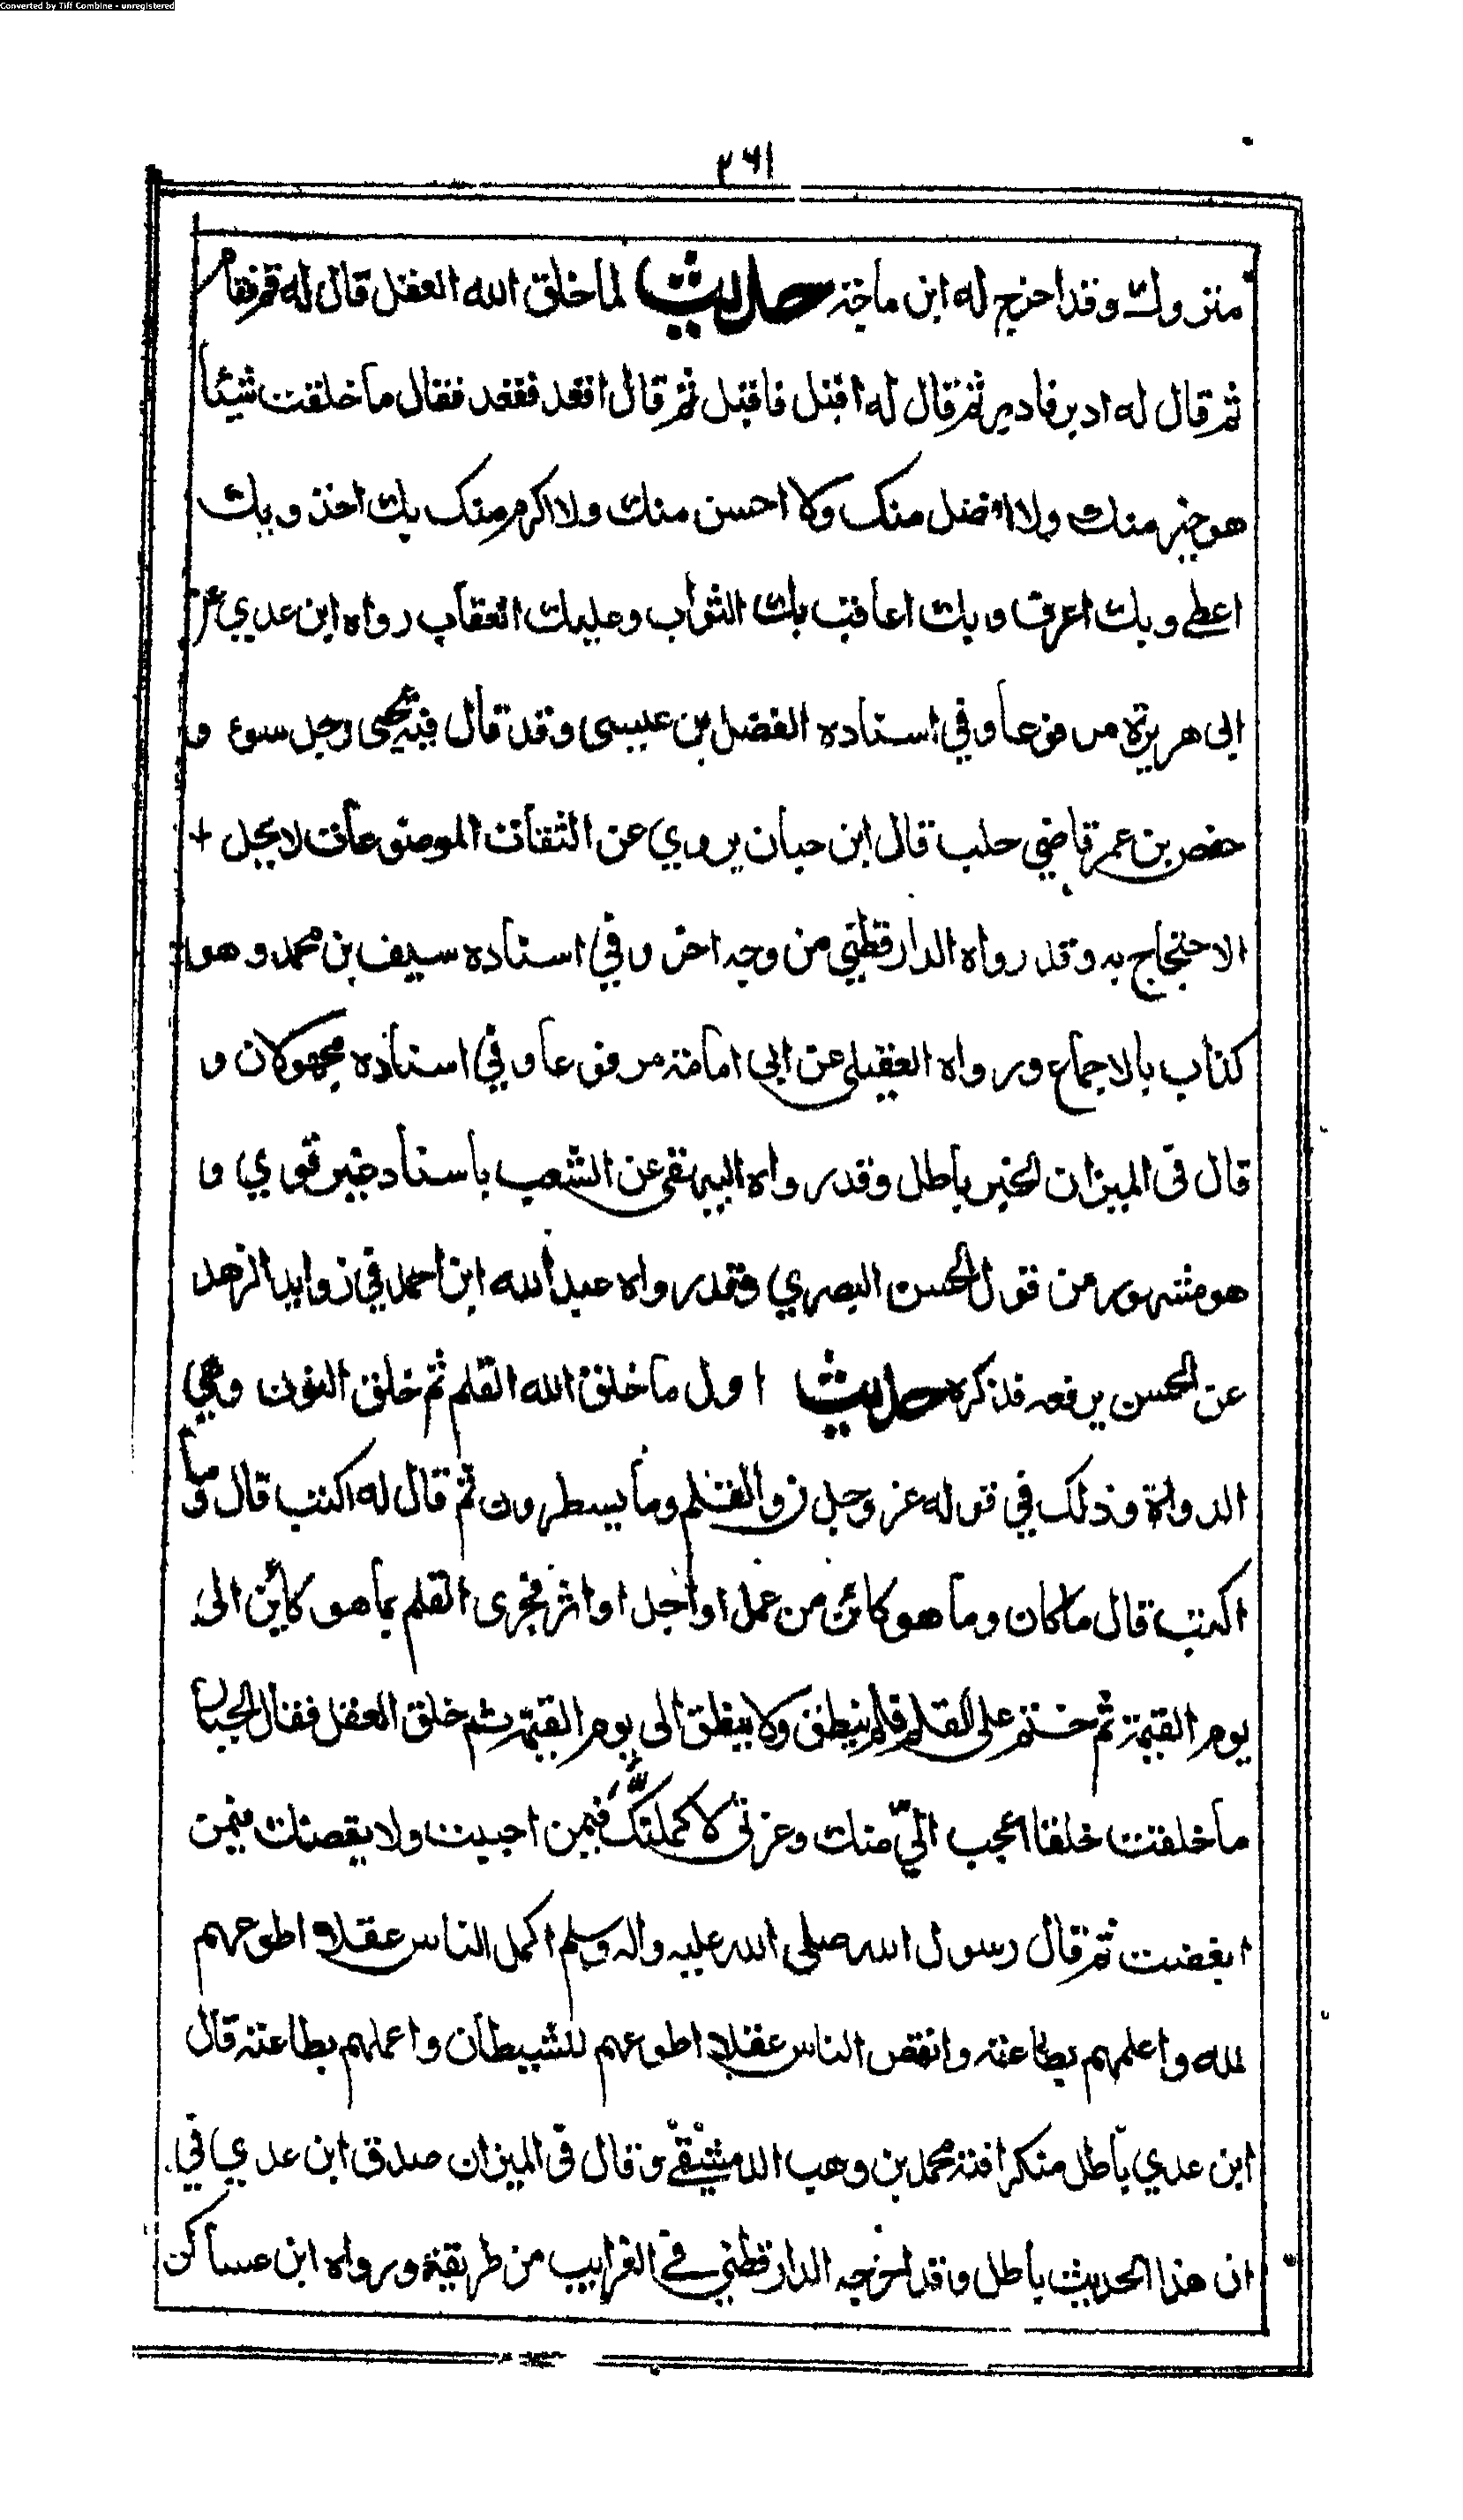 Converted by Tiff Combine - unregistered
٢٦١
متروك وقد اخرج له ابن ماجة حديث لما خلق الله العقل قال له قم فقام
ثم قال له ادبر فادبر ثم قال له اقبل فاقبل ثم قال اقعد فقعد فقال ما خلقت شيئا
هو خير منك ولا افضل منك ولا احسن منك ولا اكرم منك بك اخذ وبك
اعطي وبك اعرف وبك اعاقب بك الثواب وعليك العقاب رواه ابن عدي عن
ابى هريرة مرفوعا وفي اسناده الفضل بن عيسى وقد قال فيه يحيى رجل سوء و
حفص بن عمر قاضي حلب قال ابن حبان يروي عن الثقات الموضوعات لا يحل +
الاحتجاج به وقد رواه الدارقطني من وجه اخر وفي اسناده سيف بن محمد وهو
كذاب بالاجماع ورواه العقيلي عن ابى امامة مرفوعا وفي اسناده مجهولان و
قال فى الميزان الخبر باطل وقد رواه البيهقى عن الشعب باسناد غير قوي و
هو مشهور من قول الحسن البصري وقد رواه عبد الله ابن احمد في زوايد الزهد
عن الحسن يرفعه فذكره حديث اول ما خلق الله القلم ثم خلق النون وهي
الدواة وذلك في قوله عز وجل ن والقلم وما يسطرون ثم قال له اكتب قال وما
اكتب قال ما كان وما هو كائن من عمل او اجل او اثر فجرى القلم بما هو كائن الى
يوم القيمة ثم ختم على القلم فلم ينطق ولا ينطق الى يوم القيمة ثم خلق العقل فقال الجبار
ما خلقت خلقا اعجب الىّ منك وعزتى لاكملنّك فيمن احببت ولا نقصنك فيمن
ابغضت ثم قال رسول الله صلى الله عليه واله وسلم اكمل الناس عقلا اطوعهم
لله واعلمهم بطاعته وانقص الناس عقلا اطوعهم للشيطان واعملهم بطاعته قال
ابن عدي باطل منكر افته محمد بن وهب الدمشقي وقال فى الميزان صدق ابن عدي في
ان هذا الحديث باطل وقد اخرجه الدارقطني في الغرايب من طريقة ورواه ابن عساكر